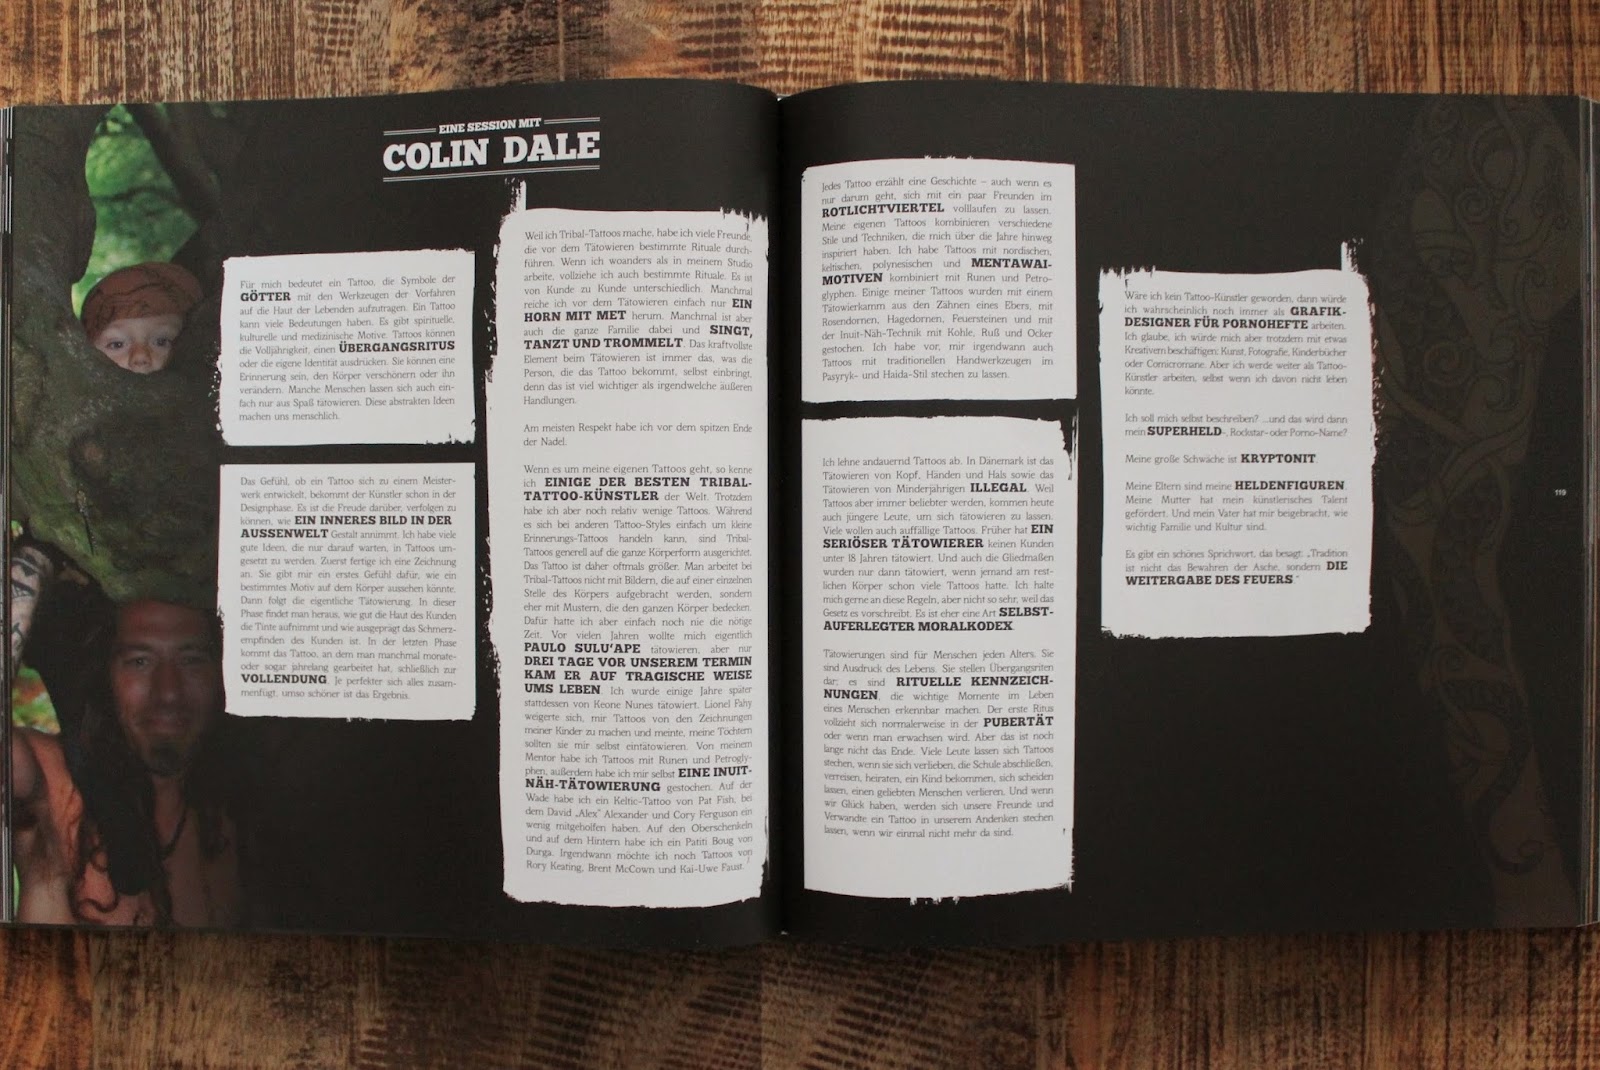 EINE SESSION MIT
COLIN DALE
Für mich bedeutet ein Tattoo, die Symbole der
GÖTTER mit den Werkzeugen der Vorfahren
auf die Haut der Lebenden aufzutragen. Ein Tattoo
kann viele Bedeutungen haben. Es gibt spirituelle,
kulturelle und medizinische Motive. Tattoos können
die Volljährigkeit, einen ÜBERGANGSRITUS
oder die eigene Identität ausdrücken. Sie können eine
Erinnerung sein, den Körper verschönern oder ihn
verändern. Manche Menschen lassen sich auch ein-
fach nur aus Spaß tätowieren. Diese abstrakten Ideen
machen uns menschlich.
Das Gefühl, ob ein Tattoo sich zu einem Meister-
werk entwickelt, bekommt der Künstler schon in der
Designphase. Es ist die Freude darüber, verfolgen zu
können, wie EIN INNERES BILD IN DER
AUSSENWELT Gestalt annimmt. Ich habe viele
gute Ideen, die nur darauf warten, in Tattoos um-
gesetzt zu werden. Zuerst fertige ich eine Zeichnung
an. Sie gibt mir ein erstes Gefühl dafür, wie ein
bestimmtes Motiv auf dem Körper aussehen könnte.
Dann folgt die eigentliche Tätowierung. In dieser
Phase findet man heraus, wie gut die Haut des Kunden
die Tinte aufnimmt und wie ausgeprägt das Schmerz-
empfinden des Kunden ist. In der letzten Phase
kommt das Tattoo, an dem man manchmal monate-
oder sogar jahrelang gearbeitet hat, schließlich zur
VOLLENDUNG. Je perfekter sich alles zusam-
menfügt, umso schöner ist das Ergebnis.
Weil ich Tribal-Tattoos mache, habe ich viele Freunde,
die vor dem Tätowieren bestimmte Rituale durch-
führen. Wenn ich woanders als in meinem Studio
arbeite, vollziehe ich auch bestimmte Rituale. Es ist
von Kunde zu Kunde unterschiedlich. Manchmal
reiche ich vor dem Tätowieren einfach nur EIN
HORN MIT MET herum. Manchmal ist aber
auch die ganze Familie dabei und SINGT,
TANZT UND TROMMELT. Das kraftvollste
Element beim Tätowieren ist immer das, was die
Person, die das Tattoo bekommt, selbst einbringt,
denn das ist viel wichtiger als irgendwelche äußeren
Handlungen.
Am meisten Respekt habe ich vor dem spitzen Ende
der Nadel.
Wenn es um meine eigenen Tattoos geht, so kenne
ich EINIGE DER BESTEN TRIBAL-
TATTOO-KÜNSTLER der Welt. Trotzdem
habe ich aber noch relativ wenige Tattoos. Während
es sich bei anderen Tattoo-Styles einfach um kleine
Erinnerungs-Tattoos handeln kann, sind Tribal-
Tattoos generell auf die ganze Körperform ausgerichtet.
Das Tattoo ist daher oftmals größer. Man arbeitet bei
Tribal-Tattoos nicht mit Bildern, die auf einer einzelnen
Stelle des Körpers aufgebracht werden, sondern
eher mit Mustern, die den ganzen Körper bedecken.
Dafür hatte ich aber einfach noch nie die nötige
Zeit. Vor vielen Jahren wollte mich eigentlich
PAULO SULU'APE tätowieren, aber nur
DREI TAGE VOR UNSEREM TERMIN
KAM ER AUF TRAGISCHE WEISE
UMS LEBEN. Ich wurde einige Jahre später
stattdessen von Keone Nunes tätowiert. Lionel Fahy
weigerte sich, mir Tattoos von den Zeichnungen
meiner Kinder zu machen und meinte, meine Töchtern
sollten sie mir selbst eintätowieren. Von meinem
Mentor habe ich Tattoos mit Runen und Petrogly-
phen, außerdem habe ich mir selbst EINE INUIT-
NÄH-TÄTOWIERUNG gestochen. Auf der
Wade habe ich ein Keltic-Tattoo von Pat Fish, bei
dem David „Alex" Alexander und Cory Ferguson ein
wenig mitgeholfen haben. Auf den Oberschenkeln
und auf dem Hintern habe ich ein Patiti Boug von
Durga. Irgendwann möchte ich noch Tattoos von
Rory Keating, Brent McCown und Kai-Uwe Faust.
Jedes Tattoo erzählt eine Geschichte – auch wenn es
nur darum geht, sich mit ein paar Freunden im
ROTLICHTVIERTEL volllaufen zu lassen.
Meine eigenen Tattoos kombinieren verschiedene
Stile und Techniken, die mich über die Jahre hinweg
inspiriert haben. Ich habe Tattoos mit nordischen,
keltischen, polynesischen und MENTAWAI-
MOTIVEN kombiniert mit Runen und Petro-
glyphen. Einige meiner Tattoos wurden mit einem
Tätowierkamm aus den Zähnen eines Ebers, mit
Rosendornen, Hagedornen, Feuersteinen und mit
der Inuit-Näh-Technik mit Kohle, Ruß und Ocker
gestochen. Ich habe vor, mir irgendwann auch
Tattoos mit traditionellen Handwerkzeugen im
Pasyryk- und Haida-Stil stechen zu lassen.
Ich lehne andauernd Tattoos ab. In Dänemark ist das
Tätowieren von Kopf, Händen und Hals sowie das
Tätowieren von Minderjährigen ILLEGAL. Weil
Tattoos aber immer beliebter werden, kommen heute
auch jüngere Leute, um sich tätowieren zu lassen.
Viele wollen auch auffällige Tattoos. Früher hat EIN
SERIÖSER TÄTOWIERER keinen Kunden
unter 18 Jahren tätowiert. Und auch die Gliedmaßen
wurden nur dann tätowiert, wenn jemand am rest-
lichen Körper schon viele Tattoos hatte. Ich halte
mich gerne an diese Regeln, aber nicht so sehr, weil das
Gesetz es vorschreibt. Es ist eher eine Art SELBST-
AUFERLEGTER MORALKODEX.
Tätowierungen sind für Menschen jeden Alters. Sie
sind Ausdruck des Lebens. Sie stellen Übergangsriten
dar; es sind RITUELLE KENNZEICH-
NUNGEN, die wichtige Momente im Leben
eines Menschen erkennbar machen. Der erste Ritus
vollzieht sich normalerweise in der PUBERTÄT
oder wenn man erwachsen wird. Aber das ist noch
lange nicht das Ende. Viele Leute lassen sich Tattoos
stechen, wenn sie sich verlieben, die Schule abschließen,
verreisen, heiraten, ein Kind bekommen, sich scheiden
lassen, einen geliebten Menschen verlieren. Und wenn
wir Glück haben, werden sich unsere Freunde und
Verwandte ein Tattoo in unserem Andenken stechen
lassen, wenn wir einmal nicht mehr da sind.
Wäre ich kein Tattoo-Künstler geworden, dann würde
ich wahrscheinlich noch immer als GRAFIK-
DESIGNER FÜR PORNOHEFTE arbeiten.
Ich glaube, ich würde mich aber trotzdem mit etwas
Kreativem beschäftigen: Kunst, Fotografie, Kinderbücher
oder Comicromane. Aber ich werde weiter als Tattoo-
Künstler arbeiten, selbst wenn ich davon nicht leben
könnte.
Ich soll mich selbst beschreiben? ...und das wird dann
mein SUPERHELD-, Rockstar- oder Porno-Name?
Meine große Schwäche ist KRYPTONIT.
Meine Eltern sind meine HELDENFIGUREN.
Meine Mutter hat mein künstlerisches Talent
gefördert. Und mein Vater hat mir beigebracht, wie
wichtig Familie und Kultur sind.
Es gibt ein schönes Sprichwort, das besagt: „Tradition
ist nicht das Bewahren der Asche, sondern DIE
WEITERGABE DES FEUERS."
119